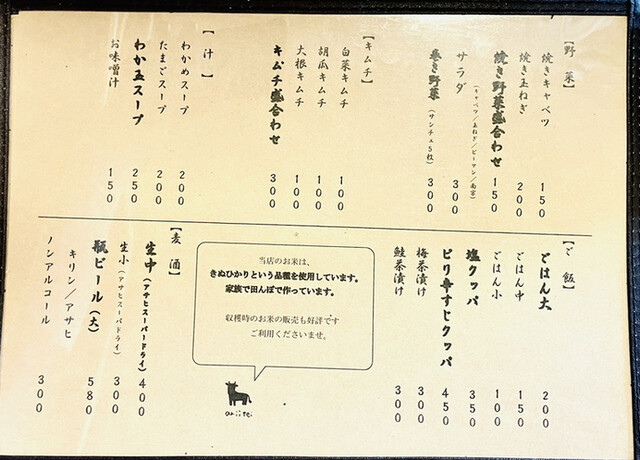 【野菜】
焼きキャベツ 150
焼き玉ねぎ 200
焼き野菜盛合わせ 150
（キャベツ／玉ねぎ／ピーマン／南京）
サラダ 300
巻き野菜（サンチュ5枚） 300
【キムチ】
白菜キムチ 100
胡瓜キムチ 100
大根キムチ 100
キムチ盛合わせ 300
【汁】
わかめスープ 200
たまごスープ 200
わか玉スープ 250
お味噌汁 150
【ご飯】
ごはん大 200
ごはん中 150
ごはん小 100
塩クッパ 350
ピリ辛すじクッパ 450
梅茶漬け 300
鮭茶漬け 300
当店のお米は、
きぬひかりという品種を使用しています。
家族で田んぼで作っています。
収穫時のお米の販売も好評です
ご利用くださいませ。
【麦酒】
生中（アサヒスーパードライ） 400
生小（アサヒスーパードライ） 300
瓶ビール（大） 580
キリン／アサヒ
ノンアルコール 300